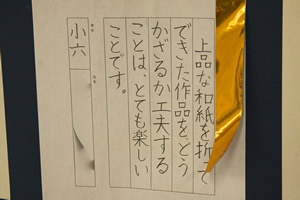 上品な和紙を折って
できた作品を、どう
かざるか工夫する
ことは、とても楽しい
ことです。
小六